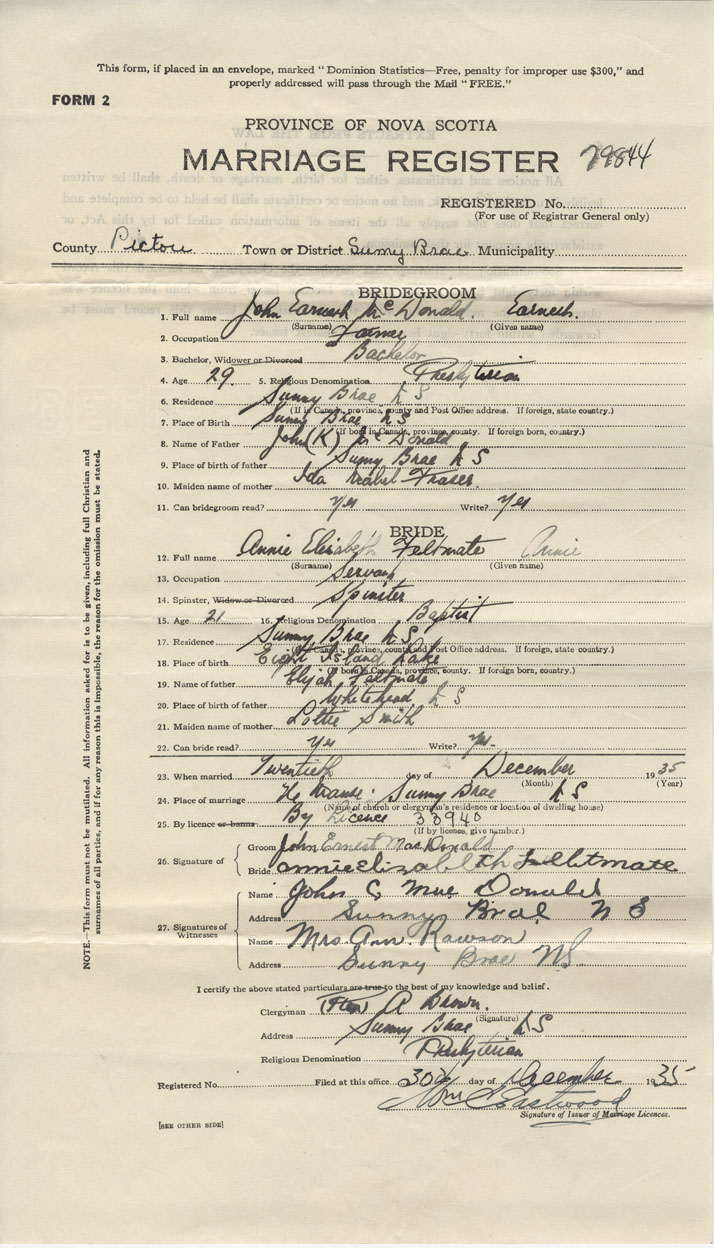 This form, if placed in an envelope, marked “ Dominion Statistics—Free, penalty for improper use $300,” and
properly addressed will pass through the Mail “ FREE.”
FORM 2
PROVINCE OF NOVA SCOTIA
MARRIAGE REGISTER 79844
REGISTERED No.
(For use of Registrar General only)
County Pictou Town or District Sunny Brae Municipality
BRIDEGROOM
1. Full name John Earnest McDonald. Earnest.
(Surname) (Given name)
2. Occupation Farmer
3. Bachelor, Widower or Divorced Bachelor
4. Age 29. 5. Religious Denomination Presbyterian
6. Residence Sunny Brae N S
(If in Canada, province, county and Post Office address. If foreign, state country.)
7. Place of Birth Sunny Brae N S
(If born in Canada, province, county. If foreign born, country.)
8. Name of Father John (K) McDonald
9. Place of birth of father Sunny Brae N S
10. Maiden name of mother Ida Mabel Fraser.
11. Can bridegroom read? Yes Write? Yes
BRIDE
12. Full name Annie Elizabeth Feltmate Annie
(Surname) (Given name)
13. Occupation Servant
14. Spinster, Widow or Divorced Spinster
15. Age 21 16. Religious Denomination Baptist
17. Residence Sunny Brae N S.
(If in Canada, province, county and Post Office address. If foreign, state country.)
18. Place of birth Eight Island Lake
(If born in Canada, province, county. If foreign born, country.)
19. Name of father Elijah Feltmate
20. Place of birth of father Whitehead N S
21. Maiden name of mother Lottie Smith
22. Can bride read? Yes Write? Yes.
23. When married Twentieth day of December 1935
(Month) (Year)
24. Place of marriage The Manse. Sunny Brae N S
(Name of church or clergyman's residence or location of dwelling house)
25. By licence or banns By Licence 33940
(If by licence, give number.)
26. Signature of
Groom John Ernest MacDonald
Bride annie Elizabeth Felltmate
27. Signatures of Witnesses
Name John C MacDonald
Address Sunny Brae N S
Name Mrs. Ann. Rawson
Address Sunny Brae NS
I certify the above stated particulars are true to the best of my knowledge and belief.
Clergyman A Brown.
(Signature)
Address Sunny Brae N S
Religious Denomination Presbyterian
Registered No. Filed at this office 30th day of December 1935
Wm C Eastwood
Signature of Issuer of Marriage Licences.
[SEE OTHER SIDE]
NOTE.—This form must not be mutilated. All information asked for is to be given, including full Christian and
surnames of all parties, and if for any reason this is impossible, the reason for the omission must be stated.